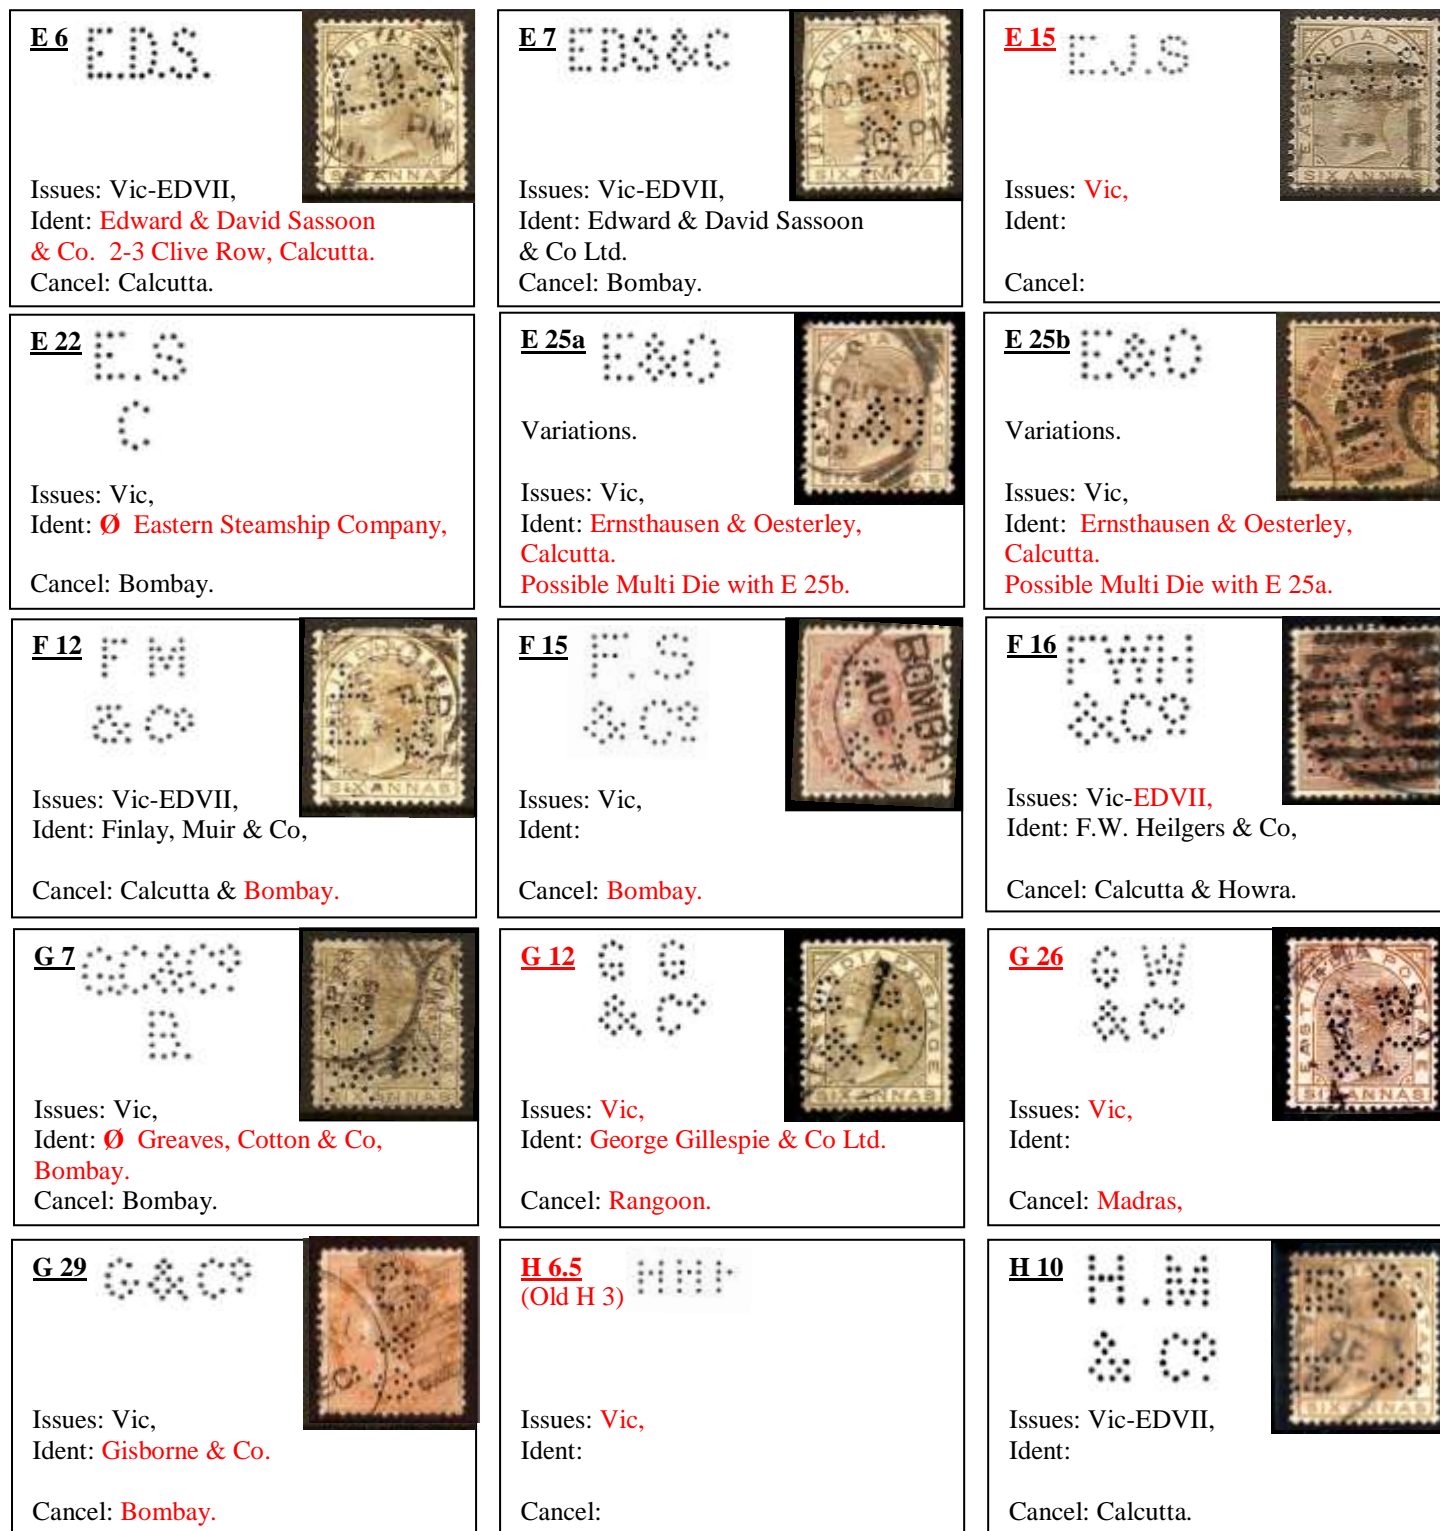 E 6 E.D.S.
Issues: Vic-EDVII,
Ident: Edward & David Sassoon
& Co. 2-3 Clive Row, Calcutta.
Cancel: Calcutta.
SIX ANNAS
E 7 EDS&C
Issues: Vic-EDVII,
Ident: Edward & David Sassoon
& Co Ltd.
Cancel: Bombay.
SIX ANNAS
E 15 E.J.S
Issues: Vic,
Ident:
Cancel:
SIX ANNAS
E 22 E.S
C
Issues: Vic,
Ident: Ø Eastern Steamship Company,
Cancel: Bombay.
E 25a E&O
Variations.
Issues: Vic,
Ident: Ernsthausen & Oesterley,
Calcutta.
Possible Multi Die with E 25b.
E 25b E&O
Variations.
Issues: Vic,
Ident: Ernsthausen & Oesterley,
Calcutta.
Possible Multi Die with E 25a.
F 12 F M
& Co
Issues: Vic-EDVII,
Ident: Finlay, Muir & Co,
Cancel: Calcutta & Bombay.
SIX ANNAS
F 15 F.S
& Co
Issues: Vic,
Ident:
Cancel: Bombay.
BOMBAY
AUG
F 16 FWH
&Co
Issues: Vic-EDVII,
Ident: F.W. Heilgers & Co,
Cancel: Calcutta & Howra.
G 7 GC&Co
B.
Issues: Vic,
Ident: Ø Greaves, Cotton & Co,
Bombay.
Cancel: Bombay.
G 12 G G
& Co
Issues: Vic,
Ident: George Gillespie & Co Ltd.
Cancel: Rangoon.
SIX ANNAS
G 26 G W
& Co
Issues: Vic,
Ident:
Cancel: Madras,
G 29 G&Co
Issues: Vic,
Ident: Gisborne & Co.
Cancel: Bombay.
H 6.5 HH
(Old H 3)
Issues: Vic,
Ident:
Cancel:
H 10 H.M
& Co
Issues: Vic-EDVII,
Ident:
Cancel: Calcutta.
SIX ANNAS